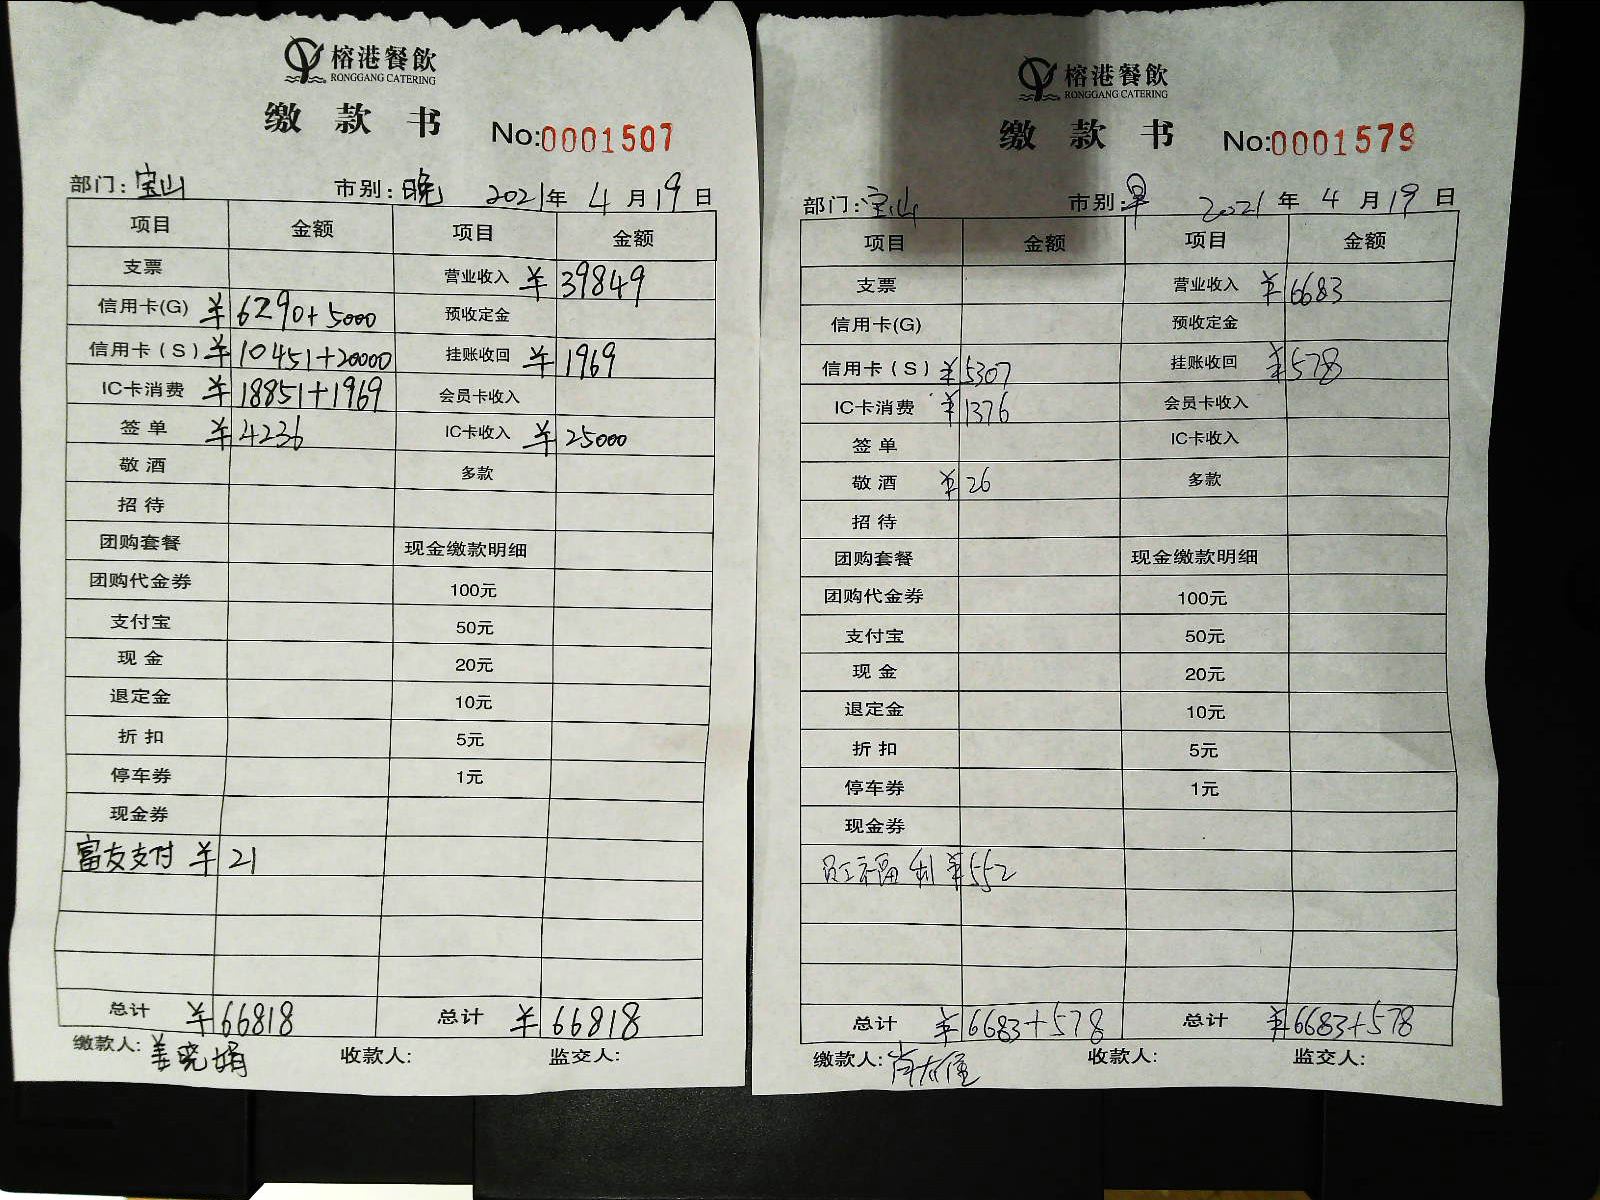 榕港餐飲
RONGGANG CATERING
缴 款 书
No:0001507
部门: 宝山 市别: 晚 2021年 4 月 19 日
项目 金额 项目 金额
支票 营业收入 ¥ 39849
信用卡(G) ¥ 6290+5000 预收定金
信用卡(S) ¥ 10451+20000 挂账收回 ¥ 1969
IC卡消费 ¥ 18851+1969 会员卡收入
签单 ¥ 4236 IC卡收入 ¥ 25000
敬酒 多款
招待
团购套餐 现金缴款明细
团购代金券 100元
支付宝 50元
现金 20元
退定金 10元
折扣 5元
停车券 1元
现金券
富友支付 ¥ 21
总计 ¥ 66818 总计 ¥ 66818
缴款人: 姜晓娟 收款人: 监交人:
榕港餐飲
RONGGANG CATERING
缴 款 书
No:0001579
部门: 宝山 市别: 早 2021 年 4 月 19 日
项目 金额 项目 金额
支票 营业收入 ¥ 6683
信用卡(G) 预收定金
信用卡(S) ¥ 5307 挂账收回 ¥ 578
IC卡消费 ¥ 1376 会员卡收入
签单 IC卡收入
敬酒 ¥ 26 多款
招待
团购套餐 现金缴款明细
团购代金券 100元
支付宝 50元
现金 20元
退定金 10元
折扣 5元
停车券 1元
现金券
员工福利 ¥ 552
总计 ¥ 6683+578 总计 ¥ 6683+578
缴款人: 收款人: 监交人: